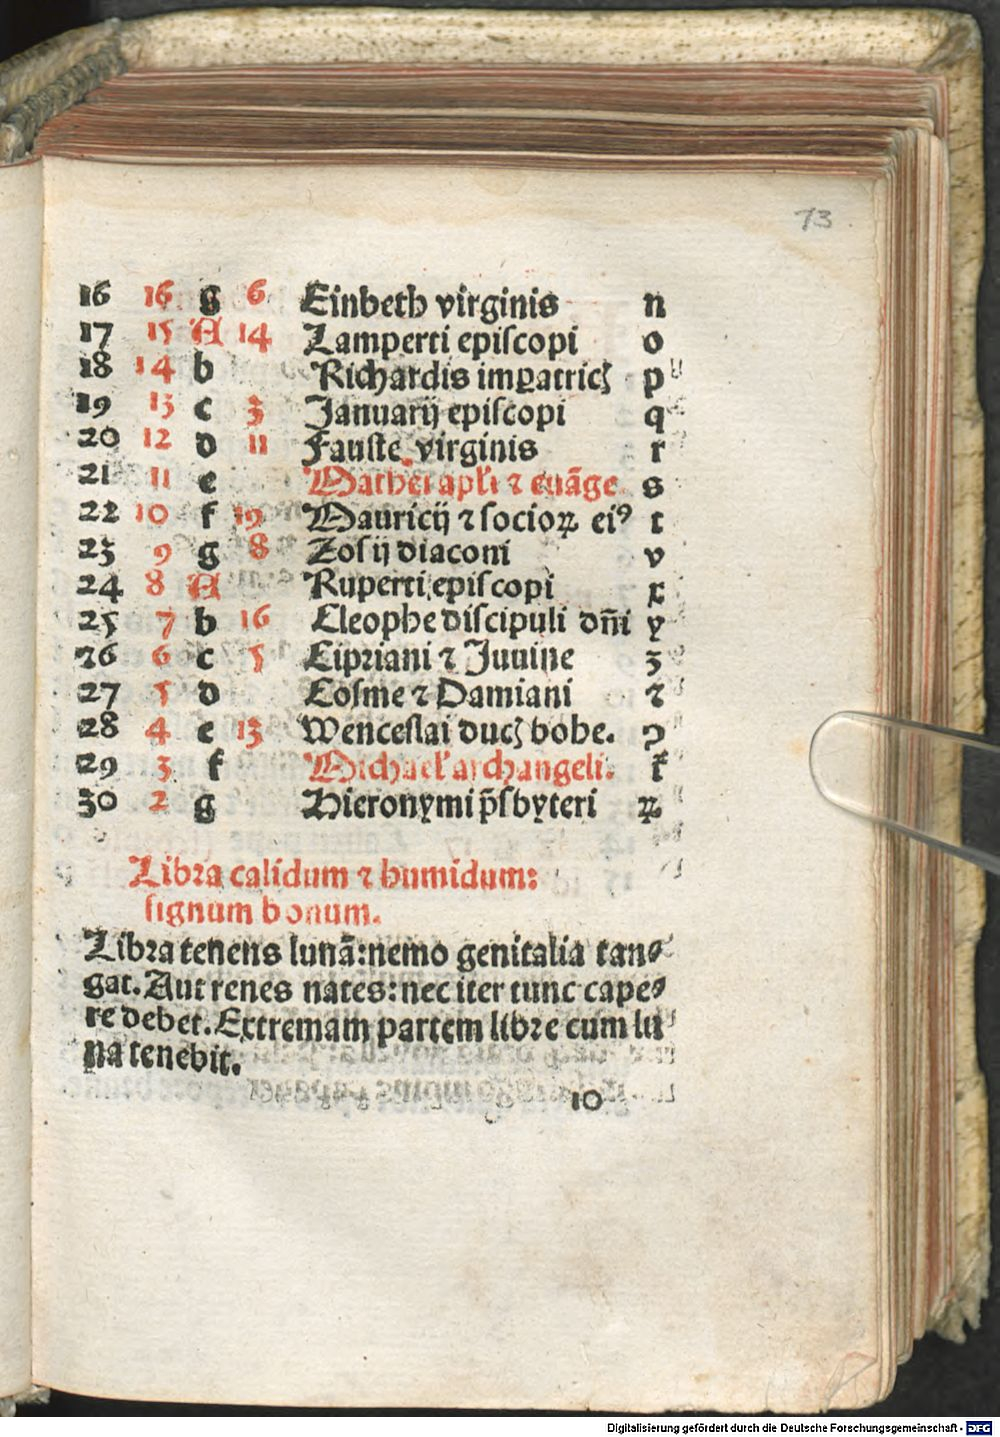 73
16 16 g 6 Einbeth virginis n
17 15 A 14 Lamperti epiſcopi o
18 14 b Richardis imꝑatricꝭ p
19 13 c 3 Januarij epiſcopi q
20 12 d 11 Fauſte virginis r
21 11 e Mathei apľi ⁊ euāge s
22 10 f 19 Mauricij ⁊ ſocioꝝ eiꝰ t
23 9 g 8 Zoſij diaconi v
24 8 A Ruperti epiſcopi x
25 7 b 16 Cleophe diſcipuli dn̄i y
26 6 c 5 Cipꝛiani ⁊ Juuine ʒ
27 5 d Coſme ⁊ Damiani ⁊
28 4 e 13 Wenceſlai ducꝭ bohe. ꝯ
29 3 f Michael' archangeli.
30 2 g Hieronymi p̄ſbyteri ꝝ
Libꝛa calidum ⁊ humidum:
ſignum bonum.
Libꝛa tenens lunā: nemo genitalia tan⸗
gat. Aut renes nates: nec iter tunc cape⸗
re debet. Extremam partem libꝛe cum lu
na tenebit.
10
Digitalisierung gefördert durch die Deutsche Forschungsgemeinschaft - DFG